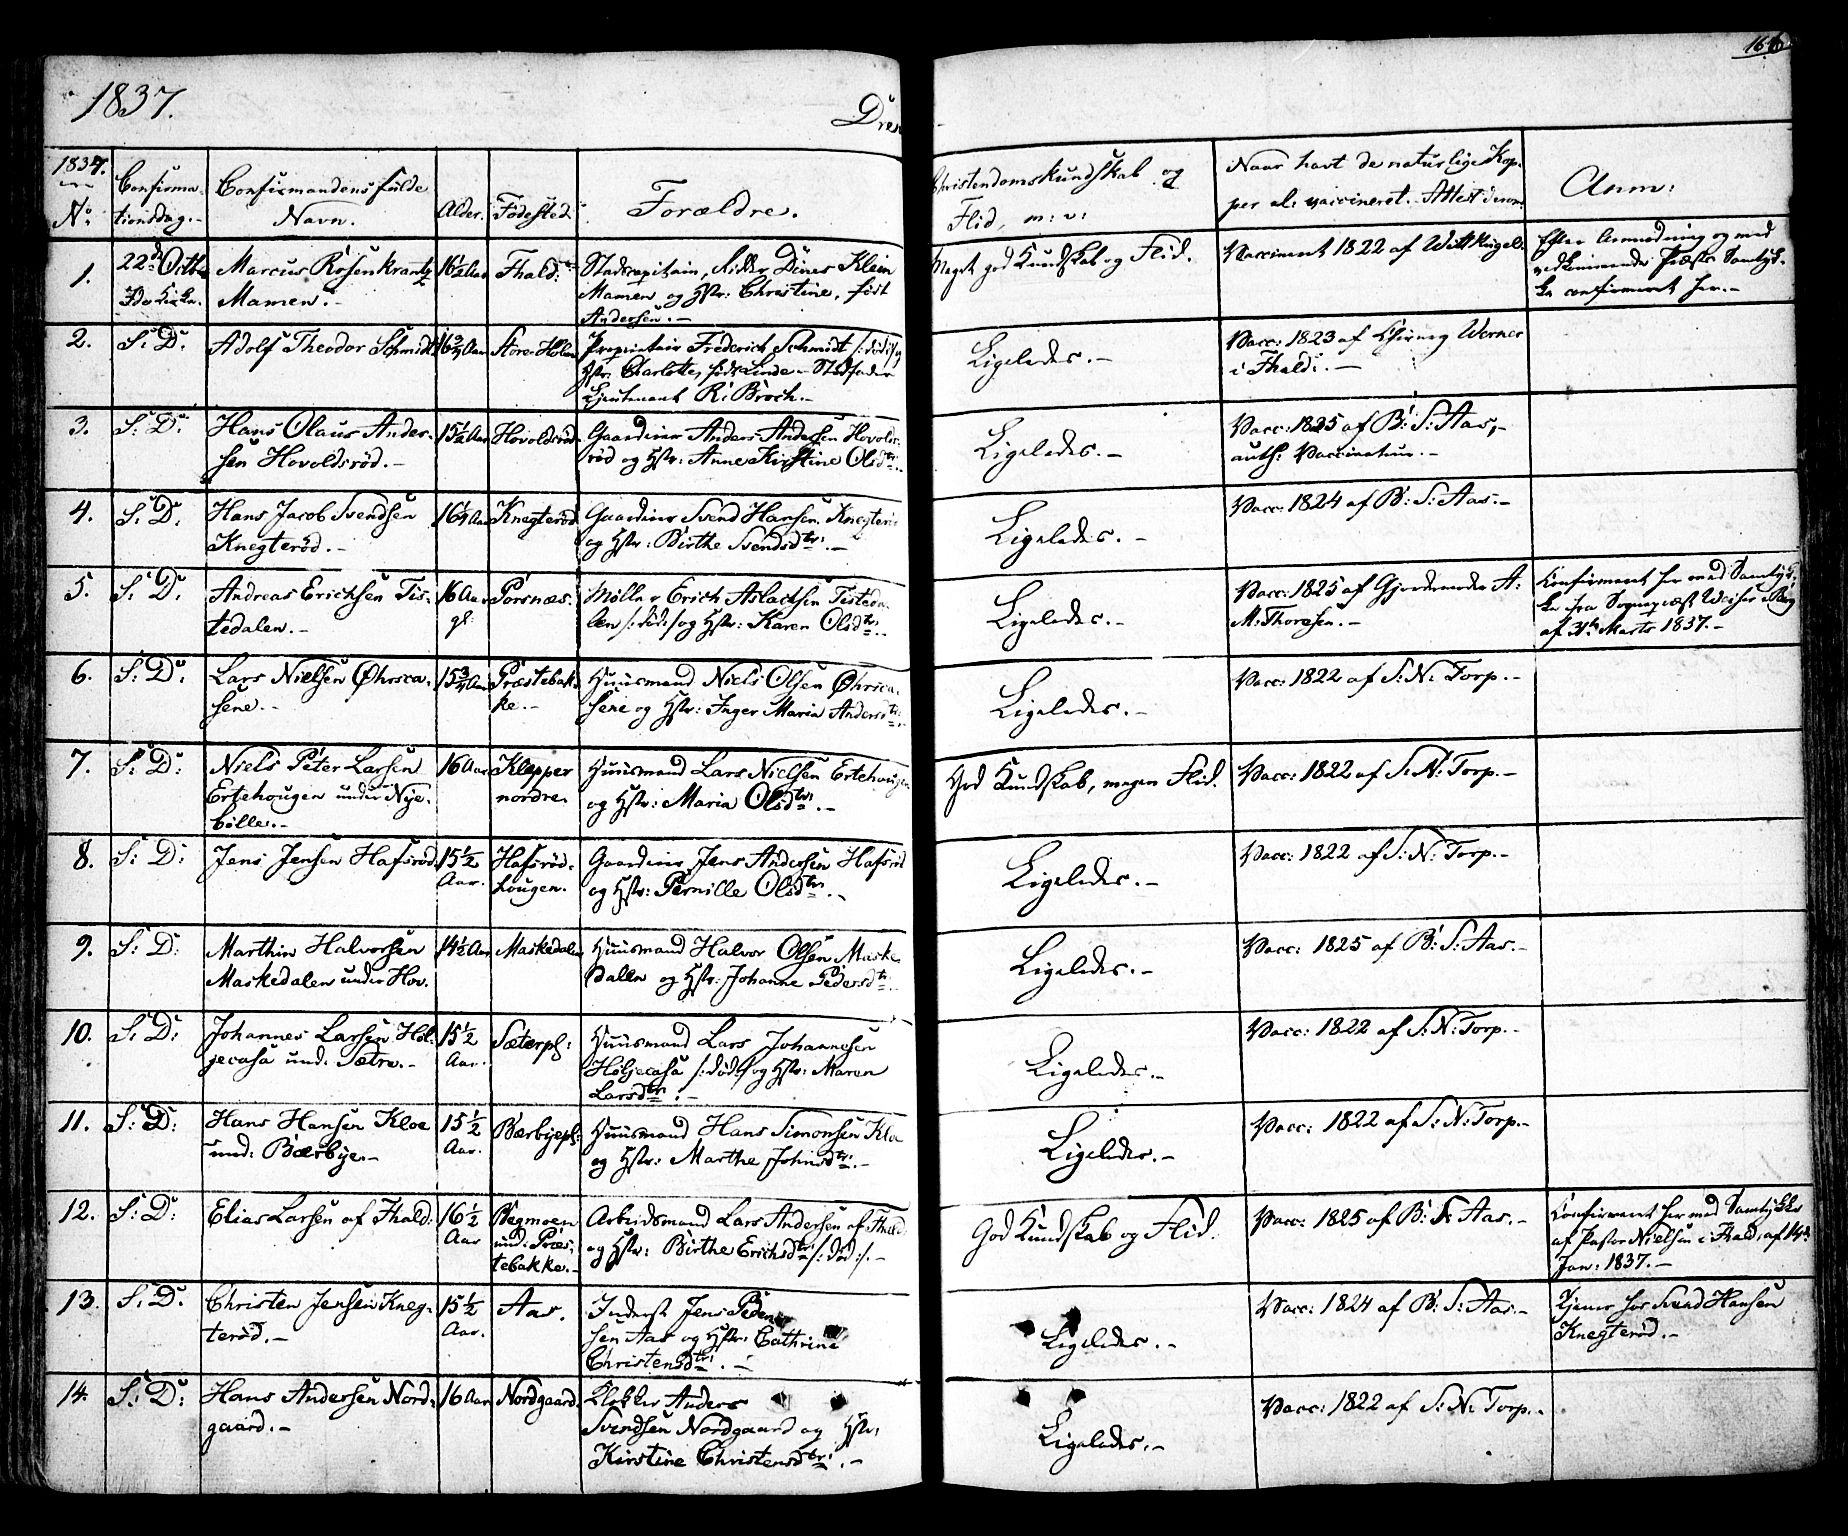 1837.
Dren
166
1837.
No
Confirma-
tionsdag.-
Confirmandens fulde
Navn.
Alder.
Fødested
Forældre.
Christendomskundskab og
Flid, m: v:
Naar havt de naturlige Kop-
per el: vaccineret. Attest derom
Anm:
1.
22d Octbr
Ide Kirke.
Marcus Rosenkrantz
Mamen.-
16½ Aar
Fhald:
Stadscapitain, Ridder Dines Klein
Mamen og Hstr: Christine, født
Andersen.-
Meget god Kundskab og Flid.
Vaccineret 1822 af Wittkugel.
Efter Anmodning og med
vedkommende Præsts Samtyk-
ke confirmeret her.-
2.
S: D:
Adolf Theodor Schmidt
16¾ Aar
Store-Holen
Proprietair Frederich Schmidt /:død:/ og
Hstr: Charlotte, født Linde - Stedfader
Lieutenant R: Broch.-
Ligeledes.-
Vacc: 1823 af Chirurg Werner
i Fhald:.-
3.
S: D:
Hans Olaus Ander-
sen Hovoldsrød.-
15½ Aar
Hovoldsrød
Gaardbr: Anders Andersen Hovolds-
rød og Hstr: Anne Kirstine Olsdtr:.
Ligeledes.-
Vacc: 1825 af B: S: Aas,-
auth: Vaccinateur.-
4.
S: D:
Hans Jacob Svendsen
Knegterød.-
16¼ Aar
Knegterød
Gaardbr: Svend Hansen Knegterø
og Hstr: Birthe Svendsdtr:.-
Ligeledes.-
Vacc: 1824 af B: S: Aas.-
5.
S: D:
Andreas Erichsen Tis-
tedalen.-
16 Aar
gl:
Porsnæs.
Møller Erich Aslachsen Tisteda-
len /:død:/ og Hstr: Karen Olsdtr:.
Ligeledes.-
Vacc: 1825 af Gjordemoder A:
M: Thoresen.-
Confirmeret her med Samtyk-
ke fra Sognepræst Weiser i Berg
af 31te Marts 1837.-
6.
S: D:
Lars Nielsen Øhrsca-
sene.-
15¾ Aar
Præstebak-
ke.-
Huusmand Niels Olsen Øhrsca-
sene og Hstr: Inger Maria Andersdtr:.
Ligeledes.-
Vacc: 1822 af S: N: Torp.-
7.
S: D:
Niels Peter Larsen
Ertehougen under Nye-
bølle.-
16 Aar
Klepper
nordre.
Huusmand Lars Nielsen Ertehougen
og Hstr: Maria Olsdtr:.-
God Kundskab, megen Flid.
Vacc: 1822 af S: N: Torp.-
8.
S: D:
Jens Jensen Hafsrød.
15½
Aar.
Hafsrød-
hougen.
Gaardbr: Jens Andersen Hafsrød
og Hstr: Pernille Olsdtr:.-
Ligeledes.-
Vacc: 1822 af S: N: Torp.-
9.
S: D:
Marthin Halvorsen
Maskedalen under Hov.
14½ Aar
Maskedalen
Huusmand Halvor Olsen Maske-
dalen og Hstr: Johanne Pedersdtr:.
Ligeledes.-
Vacc: 1825 af B: S: Aas.-
10.
S: D:
Johannes Larsen Høl-
jecasa und: Sætre.-
15½
Aar.
Sæterpl:
Huusmand Lars Johannesen
Høljecasa /:død:/ og Hstr: Maren
Larsdtr:.-
Ligeledes.-
Vacc: 1822 af S: N: Torp.-
11.
S: D:
Hans Hansen Kloe
und: Bærbye.-
15½
Aar.
Bærbyepl:
Huusmand Hans Simonsen Kloe
og Hstr: Marthe Johnsdtr:.-
Ligeledes.-
Vacc: 1822 af S: N: Torp.-
12.
S: D:
Elias Larsen af Fhald:
16½
Aar
Bøgmoen
und: Præs-
tebakke.-
Arbeidsmand Lars Andersen af Fhald:
og Hstr: Birthe Erichsdtr: /:død:/.-
God Kundskab og Flid.
Vacc: 1825 af B: S: Aas.-
Confirmeret her med Samtykke
af Pastor Nielsen i Fhald: af 14de
Jan: 1837.-
13.
S: D:
Christen Jensen Kneg-
terød.-
15½
Aar.
Aas.
Inderst Jens Peder-
sen Aas og Hstr: Cathrine
Christensdtr:.-
Ligeledes.-
Vacc: 1824 af B: S: Aas.-
Tjener hos Svend Hansen
Knegterød.-
14.
S: D:
Hans Andersen Nord-
gaard.-
16 Aar
Nordgaard.
Klokker Anders
Svendsen Nordgaard og Hstr:
Kirstine Christensdtr:.-
Ligeledes.-
Vacc: 1822 af S: N: Torp.-